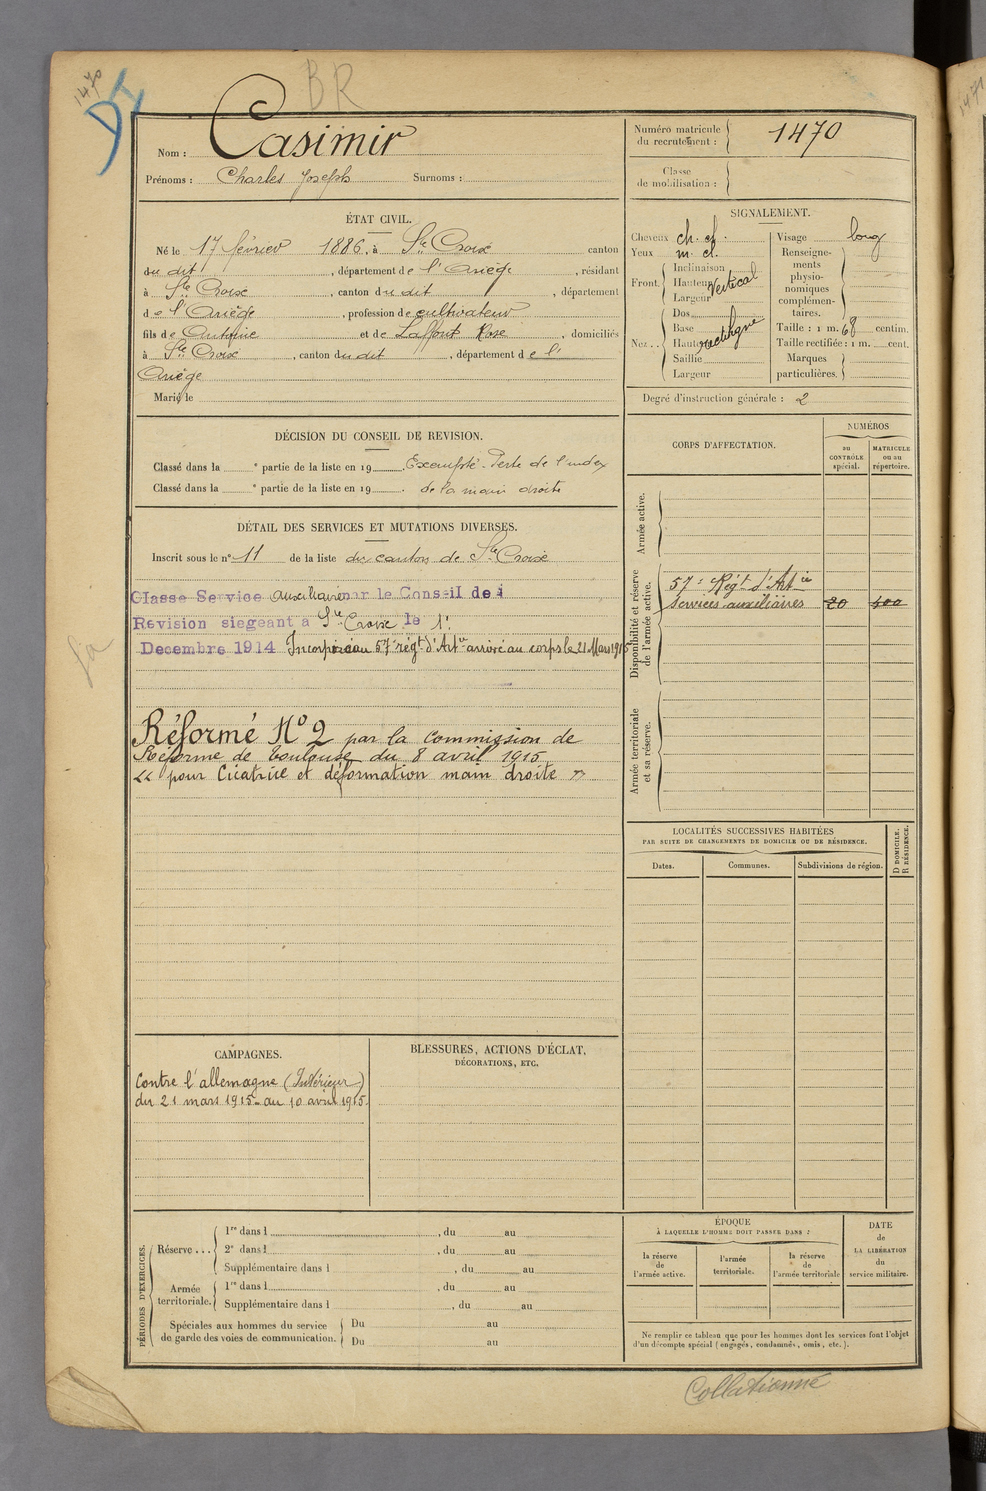 1470
DI
BR
Nom : Casimir
Prénoms : Charles Joseph Surnoms :
Numéro matricule
du recrutement : 1470
Classe
de mobilisation :
ÉTAT CIVIL.
Né le 17 février 1886, à Ste Croix canton
su dit , département de l'Ariège , résidant
à Ste Croix , canton du dit , département
de l'Ariège , profession de cultivateur
fils de Antoine et de Laffont Rose , domiciliés
à Ste Croix , canton du dit , département de l'
Ariège
Marié le
SIGNALEMENT.
Cheveux ch. cl.
Yeux m. cl.
Front. Inclinaison
Hauteur Vertical
Largeur
Nez .. Dos
Base
Hauteur rectiligne
Saillie
Largeur
Visage long
Renseigne-
ments
physio-
nomiques
complémen-
taires.
Taille : 1 m. 68 centim.
Taille rectifiée : 1 m. cent.
Marques
particulières.
Degré d'instruction générale : 2
DÉCISION DU CONSEIL DE REVISION.
Classé dans la e partie de la liste en 19 . Exempté - Perte de l'index
Classé dans la e partie de la liste en 19 . de la main droite
DÉTAIL DES SERVICES ET MUTATIONS DIVERSES.
Inscrit sous le n° 11 de la liste du canton de Ste Croix
Classe Service auxiliaire par le Conseil de
Revision siegeant à Ste Croix le 1er
Decembre 1914 Incorporé au 57e régt d'Artie arrivé au corps le 21 Mars 1915
Réformé N° 2 par la commission de
Réforme de Toulouse du 8 avril 1915
"pour Cicatrice et déformation main droite"
CORPS D'AFFECTATION.
NUMÉROS
au
CONTRÔLE
spécial.
MATRICULE
ou au
répertoire.
Armée active.
Disponibilité et réserve
de l'armée active.
57e Régt d'Artie
services auxiliaires 20 400
Armée territoriale
et sa réserve.
LOCALITÉS SUCCESSIVES HABITÉES
PAR SUITE DE CHANGEMENTS DE DOMICILE OU DE RÉSIDENCE.
Dates.
Communes.
Subdivisions de région.
D DOMICILE.
R RÉSIDENCE.
CAMPAGNES.
Contre l'allemagne (Intérieur)
du 21 mars 1915 au 10 avril 1915.
BLESSURES, ACTIONS D'ÉCLAT,
DÉCORATIONS, ETC.
PÉRIODES D'EXERCICES.
Réserve ... 1re dans l , du au
2e dans l , du au
Supplémentaire dans l , du au
Armée
territoriale. 1re dans l , du au
Supplémentaire dans l , du au
Spéciales aux hommes du service
de garde des voies de communication. Du au
Du au
ÉPOQUE
À LAQUELLE L'HOMME DOIT PASSER DANS :
la réserve
de
l'armée active.
l'armée
territoriale.
la réserve
de
l'armée territoriale
DATE
de
LA LIBÉRATION
du
service militaire.
Ne remplir ce tableau que pour les hommes dont les services font l'objet
d'un décompte spécial (engagés, condamnés, omis, etc.).
Collationné